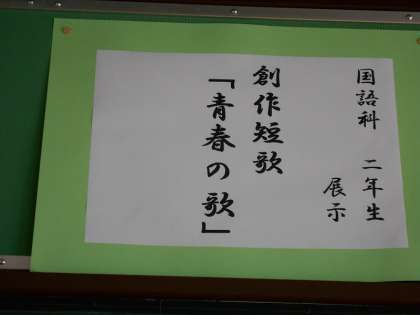 国語科　二年生
展示
創作短歌
「青春の歌」